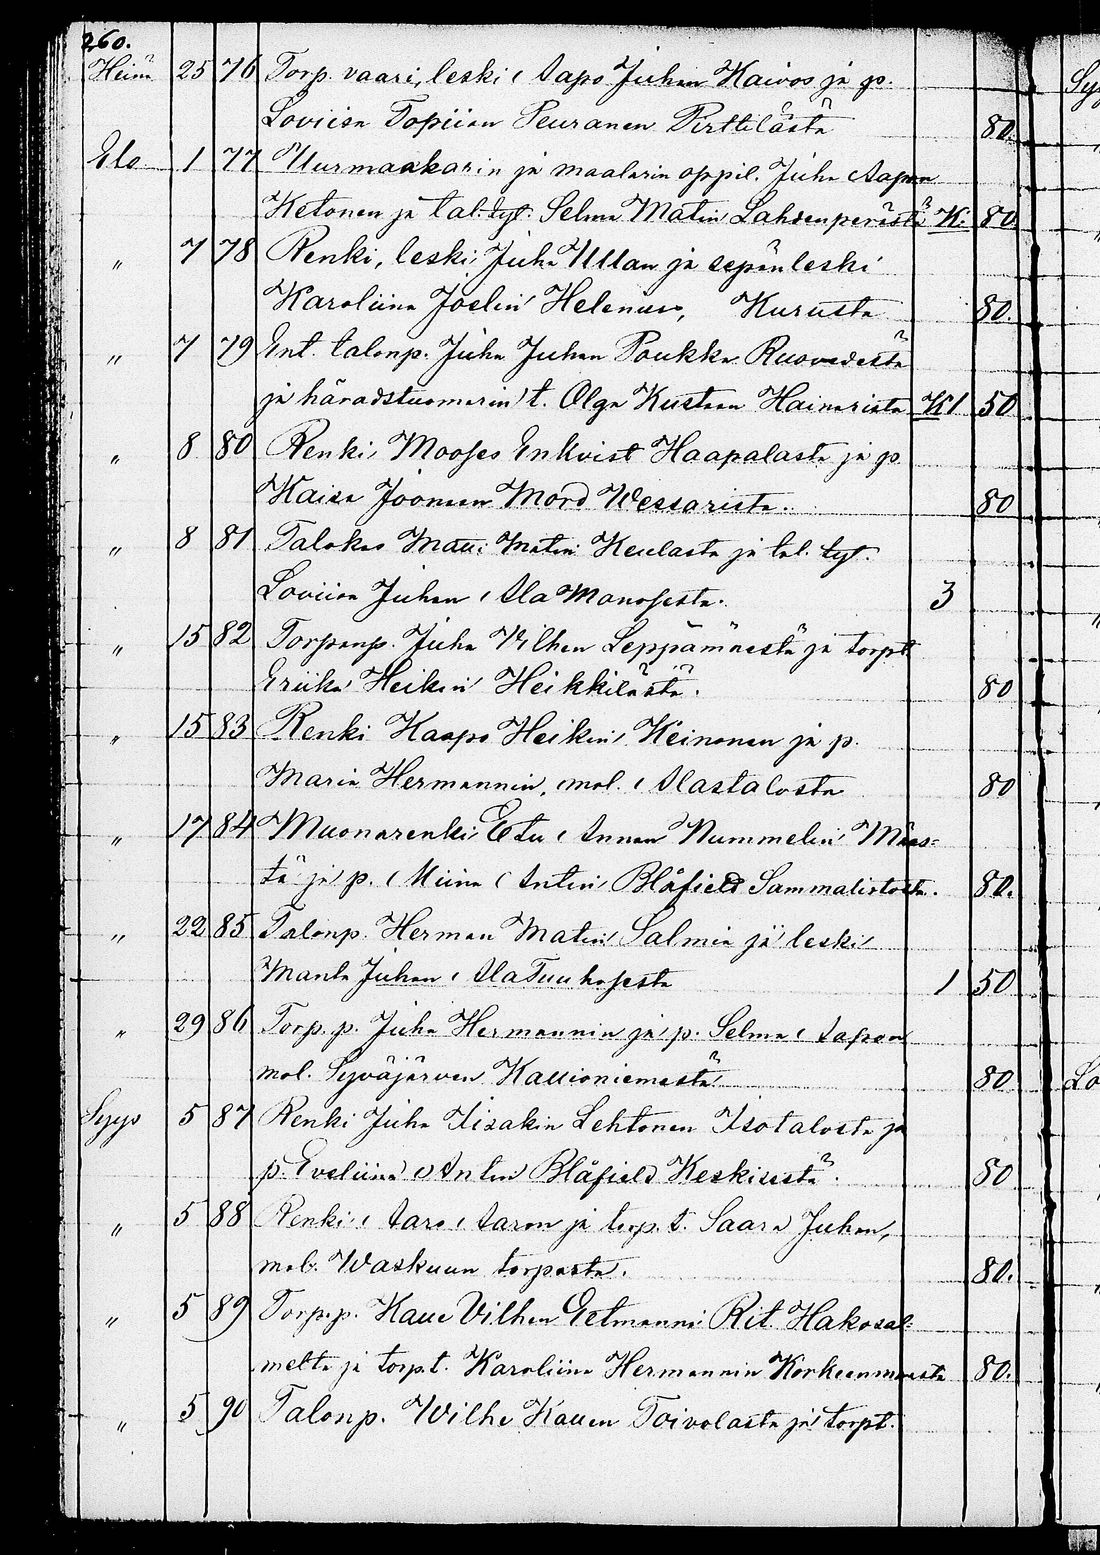 260.
Heinä 25 76 Torp. vaari, leski, Aapo Juhan Kaivos ja p.
Loviisa Topiian Peuranen Pirttilästä 80.
Elo 1 77 Uurmaakarin ja maalarin oppil. Juha Aapon
Ketonen ja tal. tyt. Selma Matin Lahdenperästä K. 80.
" 7 78 Renki, leski, Juha Ullan ja sepän leski
Karoliina Joelin Helenius, Kurusta 80.
" 7 79 Ent. talonp. Juha Juhan Poukka Ruovedestä
ja häradstuomarin t. Olga Kustaan Hainarista K 1 50
" 8 80 Renki, Mooses Enkvist Haapalasta ja p.
Kaisa Joonaan Mord Wessarista. 80
" 8 81 Talokas Matti Matin Keulasta ja tal. tyt.
Loviisa Juhan, Ala Manosesta. 3
" 15 82 Torpanp. Juha Vilhen Leppämäestä ja torpt
Eriika Heikin Heikkilästä. 80
" 15 83 Renki Kaapo Heikin, Keinonen ja p.
Maria Hermannin, mol. Alastalosta 80
" 17 84 Muonarenki Etu Annan Nummelin Mäes-
tä ja p. Miina Antin Blåfield Sammalistosta. 80.
" 22 85 Talonp. Herman Matin Salmia ja leski
Manta Juhan, Ala Tuuhosesta 1 50
" 29 86 Torp. p. Juha Hermannin ja p. Selma Aapon
mol. Syväjärven Kauioniemestä 80
Syys 5 87 Renki Juha Iisakin Lehtonen Isotalosta ja
p. Eveliina Antin Blåfield Keskisestä. 80
" 5 88 Renki, Aaro Aaron ja torp. t. Saara Juhan,
mol. Waskuun torpasta. 80.
" 5 89 Torp. p. Kalle Vilhen Eetmanni Rit. Hakosal-
melta ja torp. t. Karoliina Hermannin Korkeenmaasta 80.
" 5 90 Talonp. Wilhe Kallen Toivolasta ja torpt.